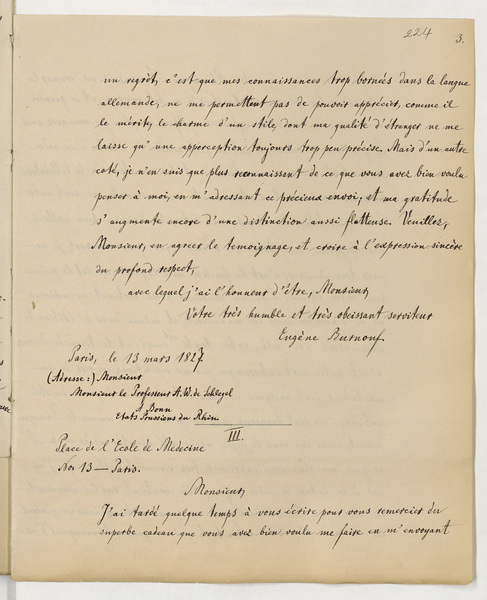 224
3.
un regret, c'est que mes connaissances trop bornées dans la langue
allemande, ne me permettent pas de pouvoir apprécier, comme il
le mérite, le charme d'un stile, dont ma qualité d'étranger ne me
laisse qu'une apperception toujours trop peu précise. Mais d'un autre
coté, je n'en suis que plus reconnaissent de ce que vous avez bien voulu
penser à moi, en m'adressant ce précieux envoi; et ma gratitude
s'augmente encore d'une distinction aussi flatteuse. Veuillez,
Monsieur, en agreer le temoignage, et croire à l'expression sincère
du profond respect,
avec lequel j'ai l'honneur d'être, Monsieur,
Votre très humble et très obeissant serviteur
Eugène Burnouf
Paris, le 13 mars 1827
(Adresse:) Monsieur
Monsieur le Professeur A. W. de Schlegel
à Bonn
Etats Prussiens du Rhin
III.
Place de l'Ecole de Médecine
Nos 13 — Paris.
Monsieur,
J'ai tardé quelque temps à vous écrire pour vous remercier du
superbe cadeau que vous avez bien voulu me faire en m'envoyant